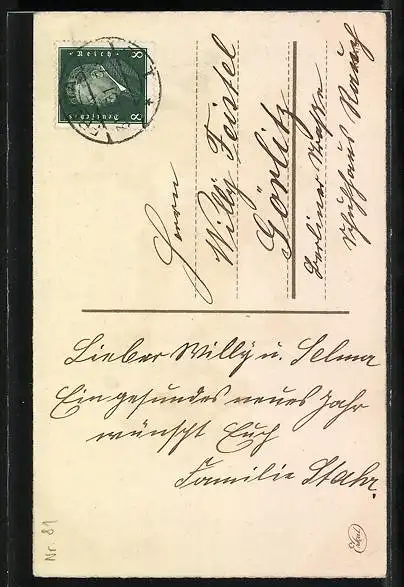 8 Deutsches Reich 8
Herrn
Willy Feistel
Görlitz
Berliner Straße
Schuhhaus Rauch
Lieber Willy u. Selma
Ein gesundes neues Jahr
wünscht Euch
Familie Stahr.
Nr. 81